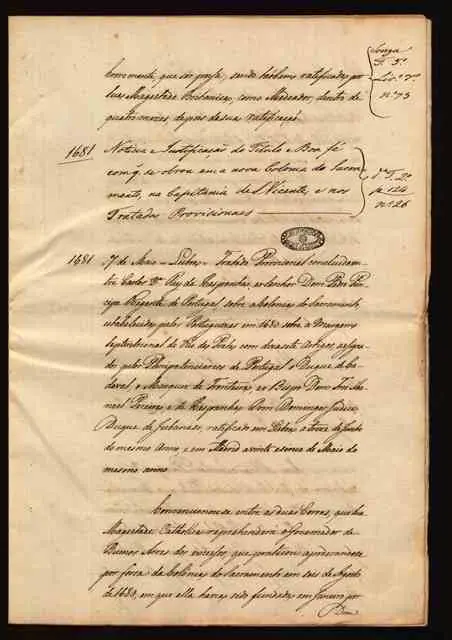 Souza
T. 5º
Liv.º 7º
nº 73
brevemente, que ser possa, sendo tambem ratificado por
sua Magestade Britanica, como Mediador, dentro de
quatro mezes, depois da sua ratificação.
1681
Noticia e Justificação do Titulo e Boa fé
com q. se obrou em a nova Colonia do Sacra-
mento, na Capitania de S. Vicente, e nos
Tratados Provisionaes
T. 2º
p. 124
nº 26
1681
7 de Maio - Lisboa - Tratado Provisional concluido en-
tre Carlos 2º Rey de Hespanha, e o Senhor Dom Pedro Prin-
cipe Regente de Portugal, sobre a Colonia do Sacramento,
estabelecida pelos Portuguezes em 1680 sobre a margem
septentrional do Rio da Prata, com dezasete Artigos, assigna-
do pelos Plenipotenciarios de Portugal o Duque de Ca-
daval, o Marquez de Fronteira, e o Bispo Dom Frei Ma-
noel Pereira, e de Hespanha Dom Domingos Judice
Duque de Jubenaso, ratificado em Lisboa a treze de Junho
do mesmo Anno, e em Madrid a vinte e cinco de Maio do
mesmo anno.
Convencionou-se entre as duas Coroas, que Sua
Magestade Catholica reprehenderia o Governador de
Buenos Ayres dos excessos, que praticou apoderando-se
por força da Colonia do Sacramento em seis de Agosto
de 1680, em que ella havia sido fundada em Janeiro por
Dom